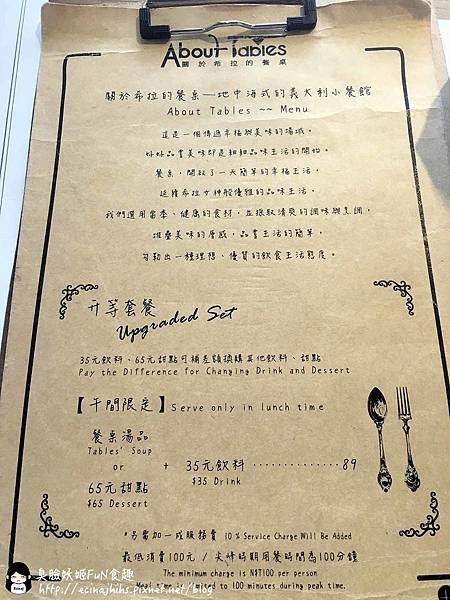 About Tables
關於希拉的餐桌
關於希拉的餐桌—地中海式的義大利小餐館
About Tables ~~ Menu
這是一個傳遞幸福與美味的場域。
好好品嘗美味即是細細品味生活的開始。
餐桌，開啟了一天簡單的幸福生活。
延續希拉女神般優雅的品味生活。
我們選用當季、健康的食材，並採取清爽的調味與烹調，
堆疊美味的層感，品嘗生活的簡單，
勾勒出一種理想、優質的飲食生活態度。
升等套餐
Upgraded Set
35元飲料、65元甜點可補差額換購其他飲料、甜點
Pay the Difference for Changing Drink and Dessert
【午間限定】Serve only in lunch time
餐桌湯品
Tables' Soup
or
65元甜點
$65 Dessert
+ 35元飲料 ·············89
$35 Drink
*另需加一成服務費 10% Service Charge Will Be Added
最低消費100元 / 尖峰時期用餐時間為100分鐘
The minimum charge is NT$100 per person
Meal time is limited to 100 minutes during peak time.
臭臉妖姬FuN食趣
http://ecinajhihs.pixnet.net/blog